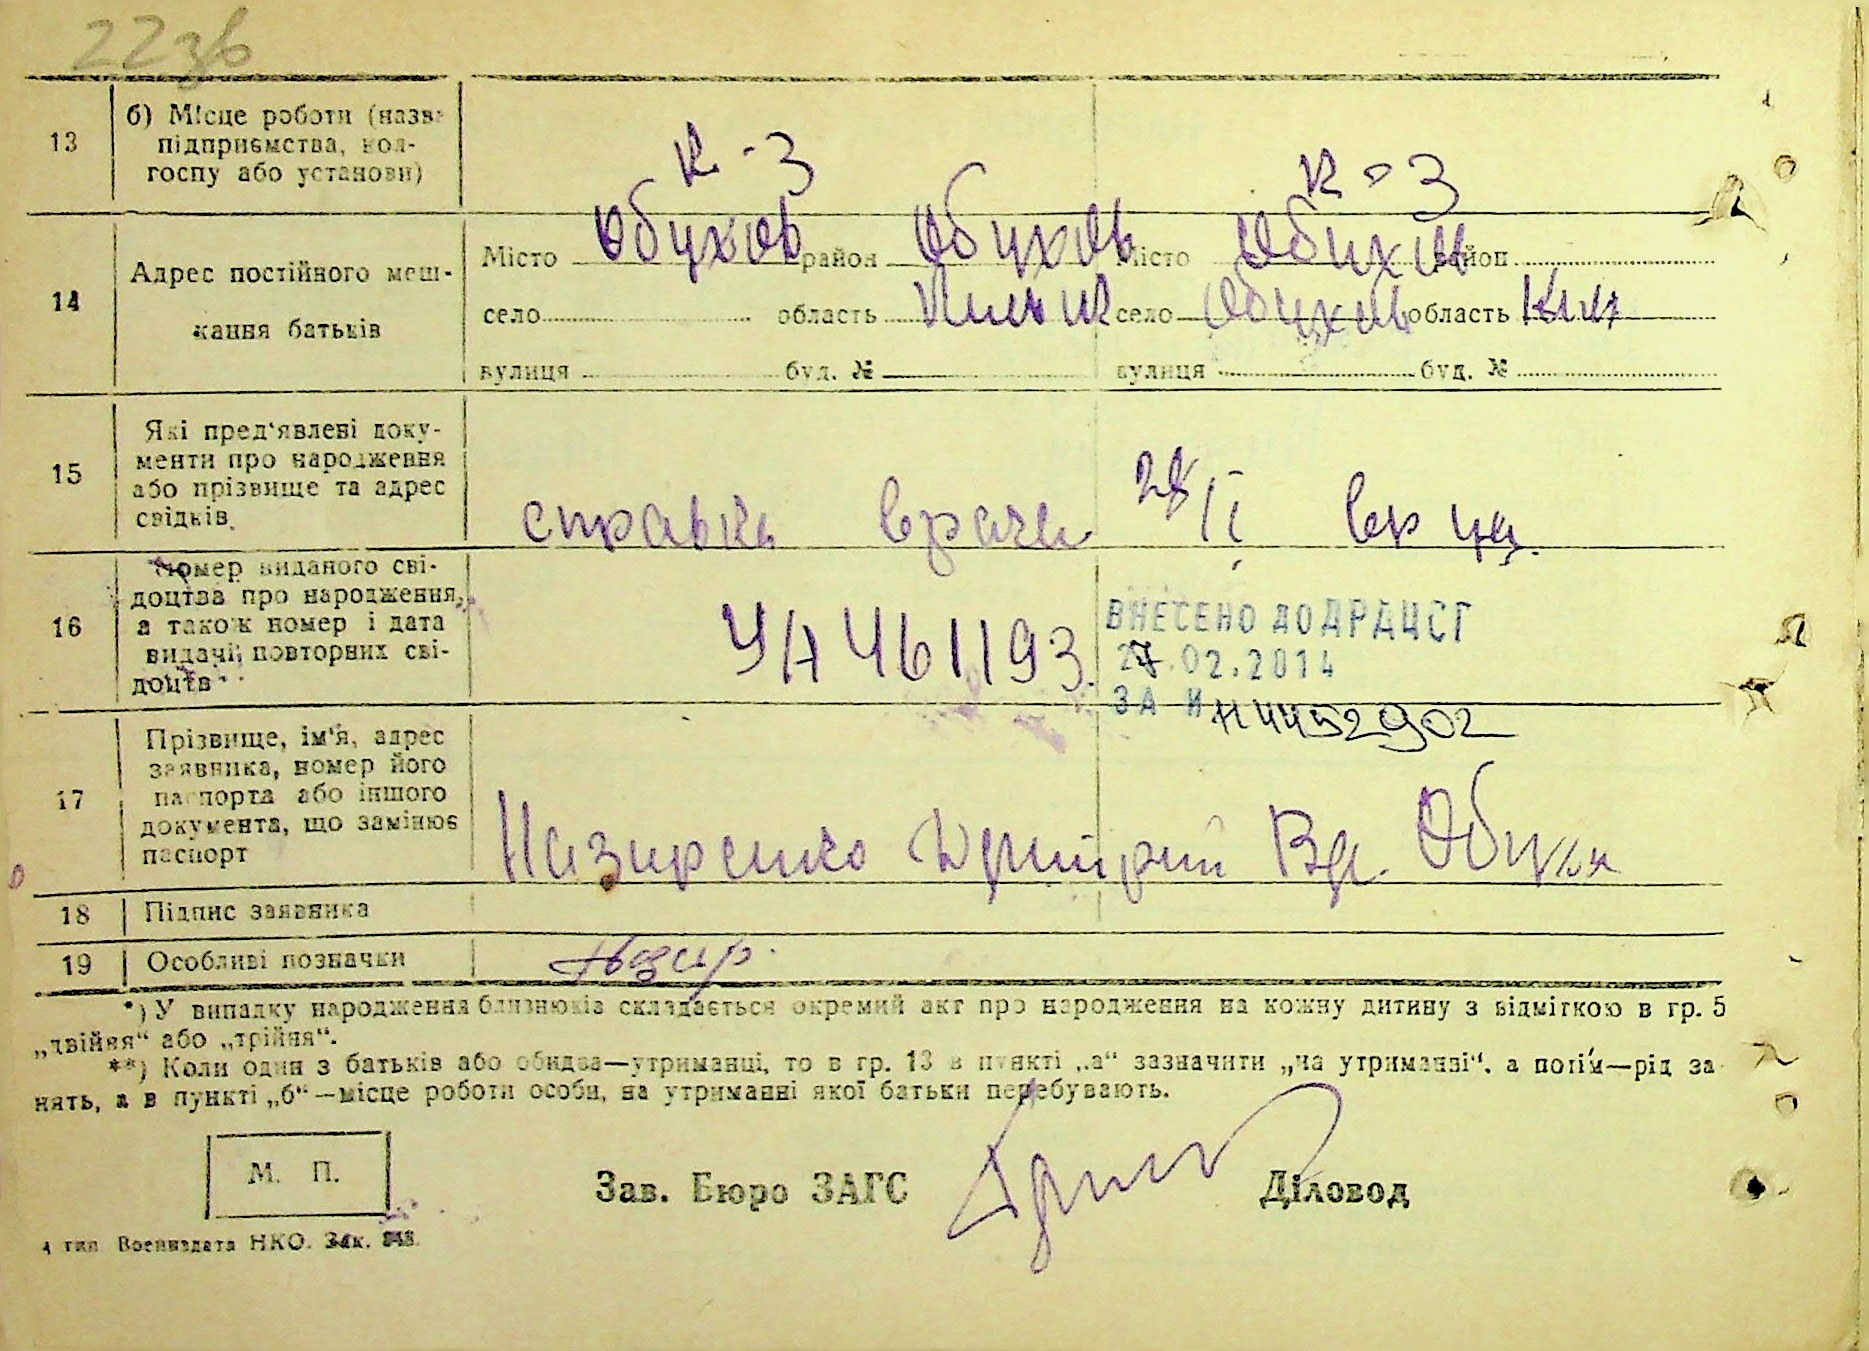 223б
13 б) Місце роботи (назва
підприємства, кол-
госпу або установи)
к-з к-з
14 Адрес постійного меш-
кання батьків
Місто Обухов район Обухов Місто Обухов район
село область Киевск село Обухов область Киев
вулиця буд. № вулиця буд. №
15 Які пред'явлені доку-
менти про народження
або прізвище та адрес
свідків.
справка врача 28/II
16 Номер виданого сві-
доцтва про народження,
а також номер і дата
видачі повторних сві-
доцтв
УА 461193.
ВНЕСЕНО ДО ДРАЦСГ
27.02.2014
ЗА № 4452902
17 Прізвище, ім'я, адрес
заявника, номер його
паспорта або іншого
документа, що замінює
паспорт
Назаренко Дмитрий Вл. Обухов
18 Підпис заявника
19 Особливі позначки
Назар.
*) У випадку народження близнюків складається окремий акт про народження на кожну дитину з відміткою в гр. 5
„двійня“ або „трійня“.
**) Коли один з батьків або обидва—утриманці, то в гр. 13 в пункті „а“ зазначити „на утриманні“, а потім—рід за-
нять, а в пункті „б“—місце роботи особи, на утриманні якої батьки перебувають.
М. П.
Зав. Бюро ЗАГС Діловод
4 тип. Воениздата НКО. Зак. 848.